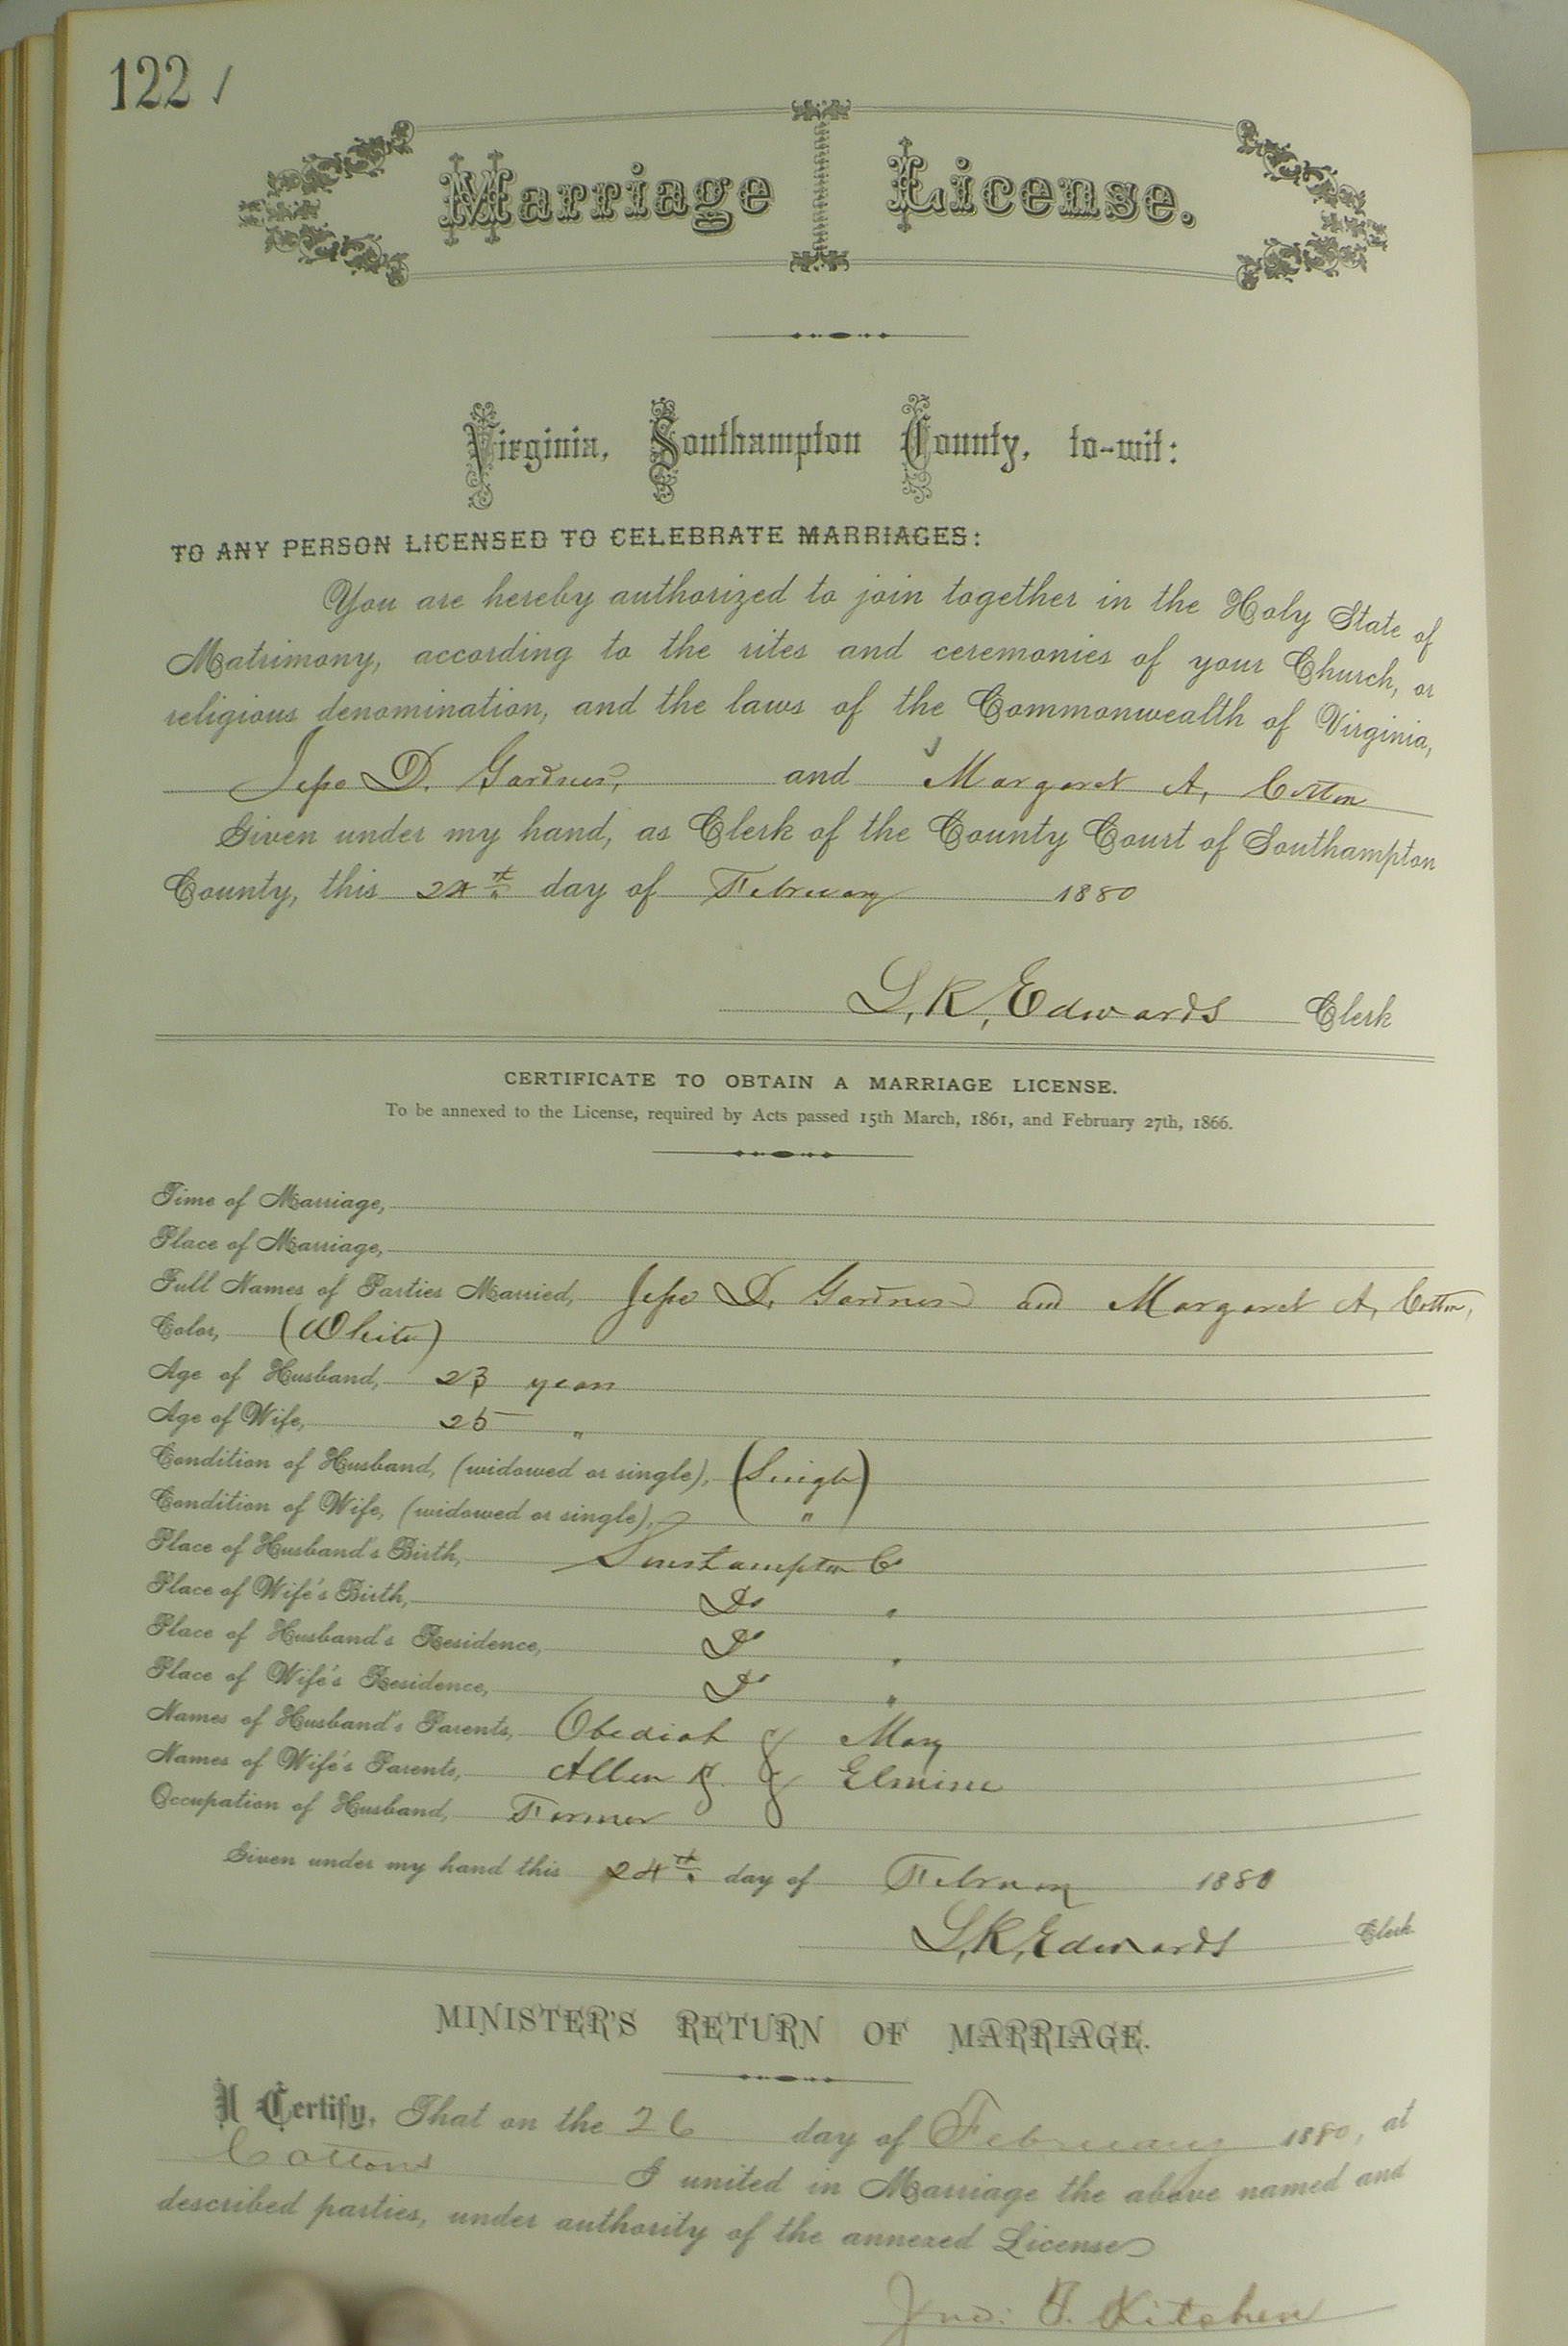 122 /
Marriage License.
Virginia, Southampton County, to-wit:
TO ANY PERSON LICENSED TO CELEBRATE MARRIAGES:
You are hereby authorized to join together in the Holy State of
Matrimony, according to the rites and ceremonies of your Church, or
religious denomination, and the laws of the Commonwealth of Virginia,
Jesse D. Gardner, and Margaret A. Cotton
Given under my hand, as Clerk of the County Court of Southampton
County, this 24th day of February 1880
L. R. Edwards Clerk
CERTIFICATE TO OBTAIN A MARRIAGE LICENSE.
To be annexed to the License, required by Acts passed 15th March, 1861, and February 27th, 1866.
Time of Marriage,
Place of Marriage,
Full Names of Parties Married, Jesse D. Gardner and Margaret A. Cotton,
Color, (White)
Age of Husband, 23 years
Age of Wife, 25 "
Condition of Husband, (widowed or single), (Single)
Condition of Wife, (widowed or single), "
Place of Husband's Birth, Southampton Co
Place of Wife's Birth, Do "
Place of Husband's Residence, Do "
Place of Wife's Residence, Do "
Names of Husband's Parents, Obediah & Mary
Names of Wife's Parents, Allen & Elmine
Occupation of Husband, Farmer
Given under my hand this 24th day of February 1880
L. R. Edwards Clerk
MINISTER'S RETURN OF MARRIAGE.
I Certify, That on the 26 day of February 1880, at
Cottons I united in Marriage the above named and
described parties, under authority of the annexed License
Jno: T. Kitchen